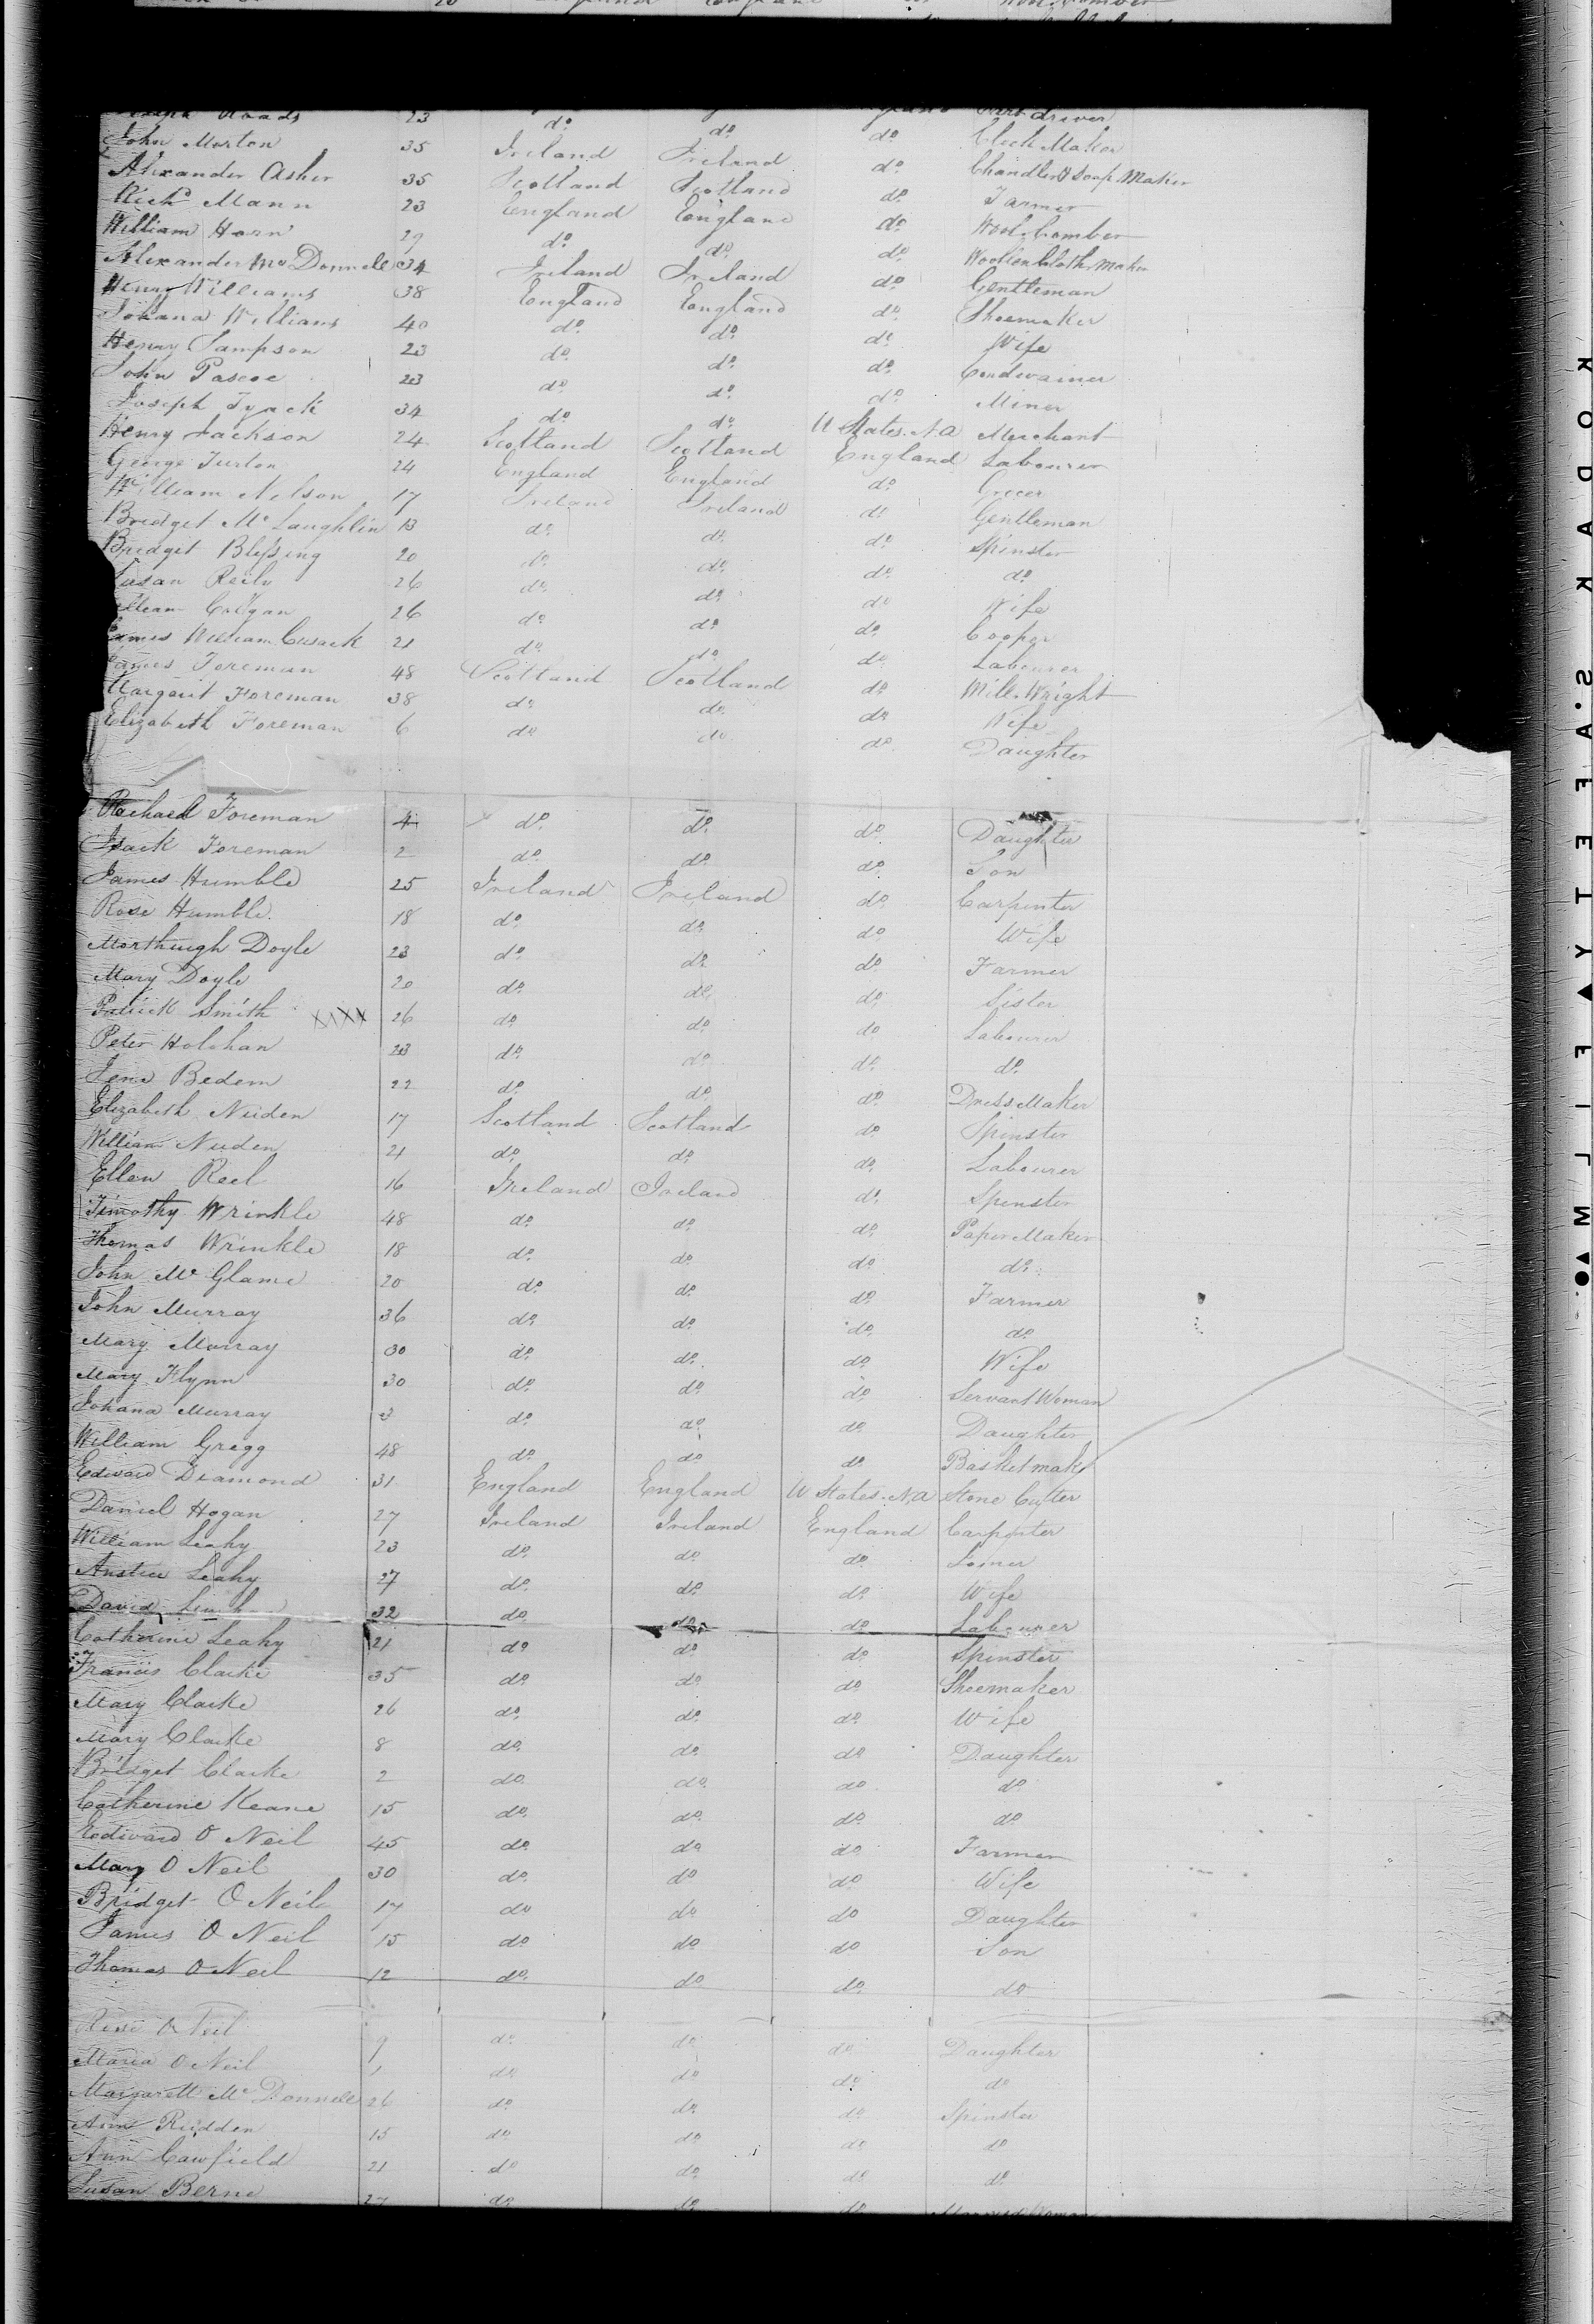 Roads 23 do do driver
John Morton 35 Ireland Ireland do Clock Maker
Alexander Asher 35 Scotland Scotland do Chandler & Soap Maker
Richd Mann 23 England England do Farmer
William Horn 29 do do do Wool Comber
Alexander McDonnell 34 Ireland Ireland do Woollen Cloth Maker
Henry Williams 38 England England do Gentleman
Johana Williams 40 do do do Shoemaker
Henry Sampson 23 do do do Wife
John Pascoe 23 do do do Cordwainer
Joseph Tyack 34 do do do Miner
Henry Jackson 24 Scotland Scotland U States N A Merchant
George Turton 24 England England England Labourer
William Nelson 17 Ireland Ireland do Grocer
Bridget McLaughlin 13 do do do Gentleman
Bridget Blessing 20 do do do Spinster
Susan Reily 26 do do do do
William Colgan 26 do do do Wife
James William Cusack 21 do do do Cooper
James Foreman 48 Scotland Scotland do Labourer
Margaret Foreman 38 do do do Mill Wright
Elizabeth Foreman 6 do do do Wife
do Daughter
Rachael Foreman 4 do do do Daughter
Isack Foreman 2 do do do Son
James Humble 25 Ireland Ireland do Carpenter
Rose Humble 18 do do do Wife
Morthugh Doyle 23 do do do Farmer
Mary Doyle 20 do do do Sister
Patrick Smith XXXX 26 do do do Labourer
Peter Holohan 23 do do do do
Jene Bedem 22 do do do Dress Maker
Elizabeth Nuden 17 Scotland Scotland do Spinster
William Nuden 21 do do do Labourer
Ellen Reel 16 Ireland Ireland do Spinster
Timothy Wrinkle 48 do do do Paper Maker
Thomas Wrinkle 18 do do do do
John McGlame 20 do do do Farmer
John Murray 36 do do do do
Mary Murray 30 do do do Wife
Mary Flynn 30 do do do Servant Woman
Johana Murray 3 do do do Daughter
William Gregg 48 do do do Basket maker
Edward Diamond 31 England England U States N A Stone Cutter
Daniel Hogan 27 Ireland Ireland England Carpenter
William Leahy 23 do do do Joiner
Anstice Leahy 27 do do do Wife
David 32 do do do Labourer
Catherine Leahy 21 do do do Spinster
Francis Clarke 35 do do do Shoemaker
Mary Clarke 26 do do do Wife
Mary Clarke 8 do do do Daughter
Bridget Clarke 2 do do do do
Catherine Keane 15 do do do do
Edward O Neil 45 do do do Farmer
Mary O Neil 30 do do do Wife
Bridget O Neil 17 do do do Daughter
James O Neil 15 do do do Son
Thomas O Neil 12 do do do do
Rose O Neil 9 do do do Daughter
Maria O Neil 1 do do do do
Margarett McDonnell 26 do do do Spinster
Ann Rudden 15 do do do do
Ann Cawfield 21 do do do do
Susan Berne 27 do do do
KODAK S.A.F.E.T.Y FILM